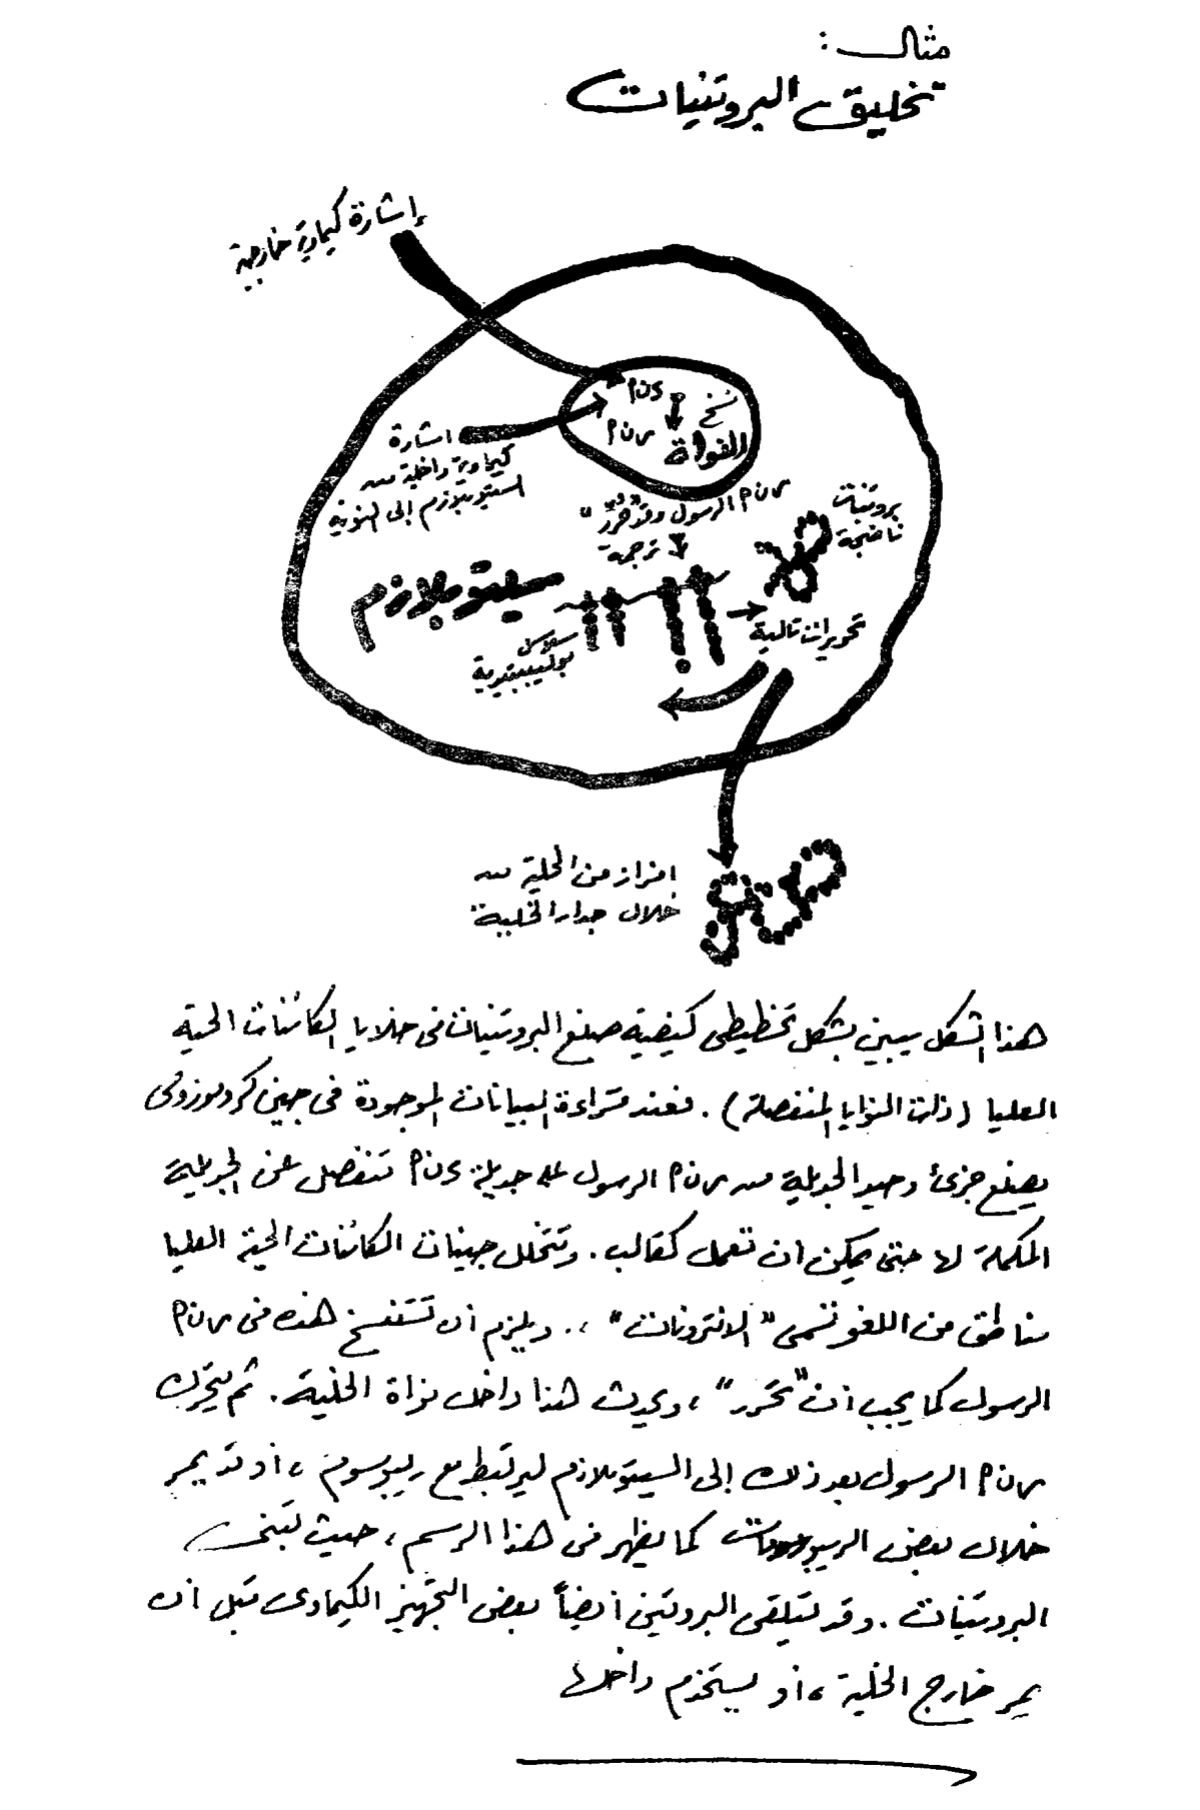 مثال :
تخليق البروتينات
إشارة كيماوية خارجية
دنأ
نسخ
رنأ
النواة
اشارة
كيماوية داخلية من
السيتوبلازم إلى النوية
رنأ الرسول وقد "حُرر"
ترجمة
بروتينات
ناضجة
سيتوبلازم
تحويرات تالية
سلاسل
بوليببتيدية
افراز من الخلية من
خلال جدار الخلية
هذا الشكل يبين بشكل تخطيطى كيفية صنع البروتينات فى خلايا الكائنات الحية
العليا (ذات النوايا المنفصلة) . فعند قراءة البيانات الموجودة فى جين كروموزومى
يصنع جزئ وحيد الجديلة من رنأ الرسول على جديلة دنأ تنفصل عن الجديلة
المكملة لها حتى يمكن ان تعمل كقالب . وتتخلل جينات الكائنات الحية العليا
مناطق من اللغو تسمى "الانترونات" ، . ويلزم ان تستنسخ هذه فى رنأ
الرسول كما يجب ان "تحرر" ، ويحدث هذا داخل نواة الخلية . ثم يتحرك
رنأ الرسول بعد ذلك إلى السيتوبلازم ليرتبط مع ريبوسوم ، او قد يمر
خلال بعض الريبوسومات كما يظهر فى هذا الرسم ، حيث تبنى
البروتينات . وقد يتلقى البروتين ايضاً بعض التجهيز الكيماوى قبل ان
يمر خارج الخلية ، او يستخدم داخلها